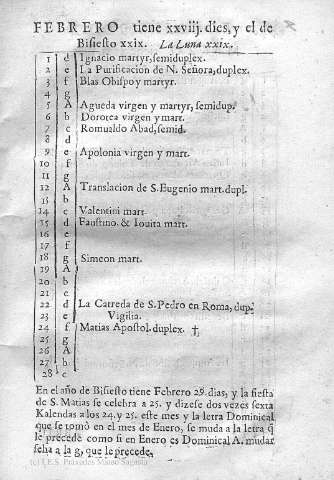 FEBRERO tiene xxviij. dies, y el de
Bisiesto xxix. La Luna xxix.
1 d Ignacio martyr, semiduplex.
2 e La Purificacion de N. Señora, duplex.
3 f Blas Obispo y martyr.
4 g
5 A Agueda virgen y martyr, semidup.
6 b Dorotea virgen y mart.
7 c Romualdo Abad, semid.
8 d
9 e Apolonia virgen y mart.
10 f
11 g
12 A Translacion de S. Eugenio mart. dupl.
13 b
14 c Valentini mart.
15 d Faustino. & Iouita mart.
16 e
17 f
18 g Simeon mart.
19 A
20 b
21 c
22 d La Catreda de S. Pedro en Roma, dup.
23 e Vigilia.
24 f Matias Apostol. duplex. †
25 g
26 A
27 b
28 c
En el año de Bisiesto tiene Febrero 29. dias, y la fiesta
de S. Matias se celebra a 25. y dizese dos vezes sexta
Kalendas a los 24. y 25. este mes y la letra Dominical
que se tomò en el mes de Enero, se muda a la letra q̃
le precede como si en Enero es Dominical A. mudar
seha a la g, que le precede.
(c) I.E.S. Práxedes Mateo Sagasta